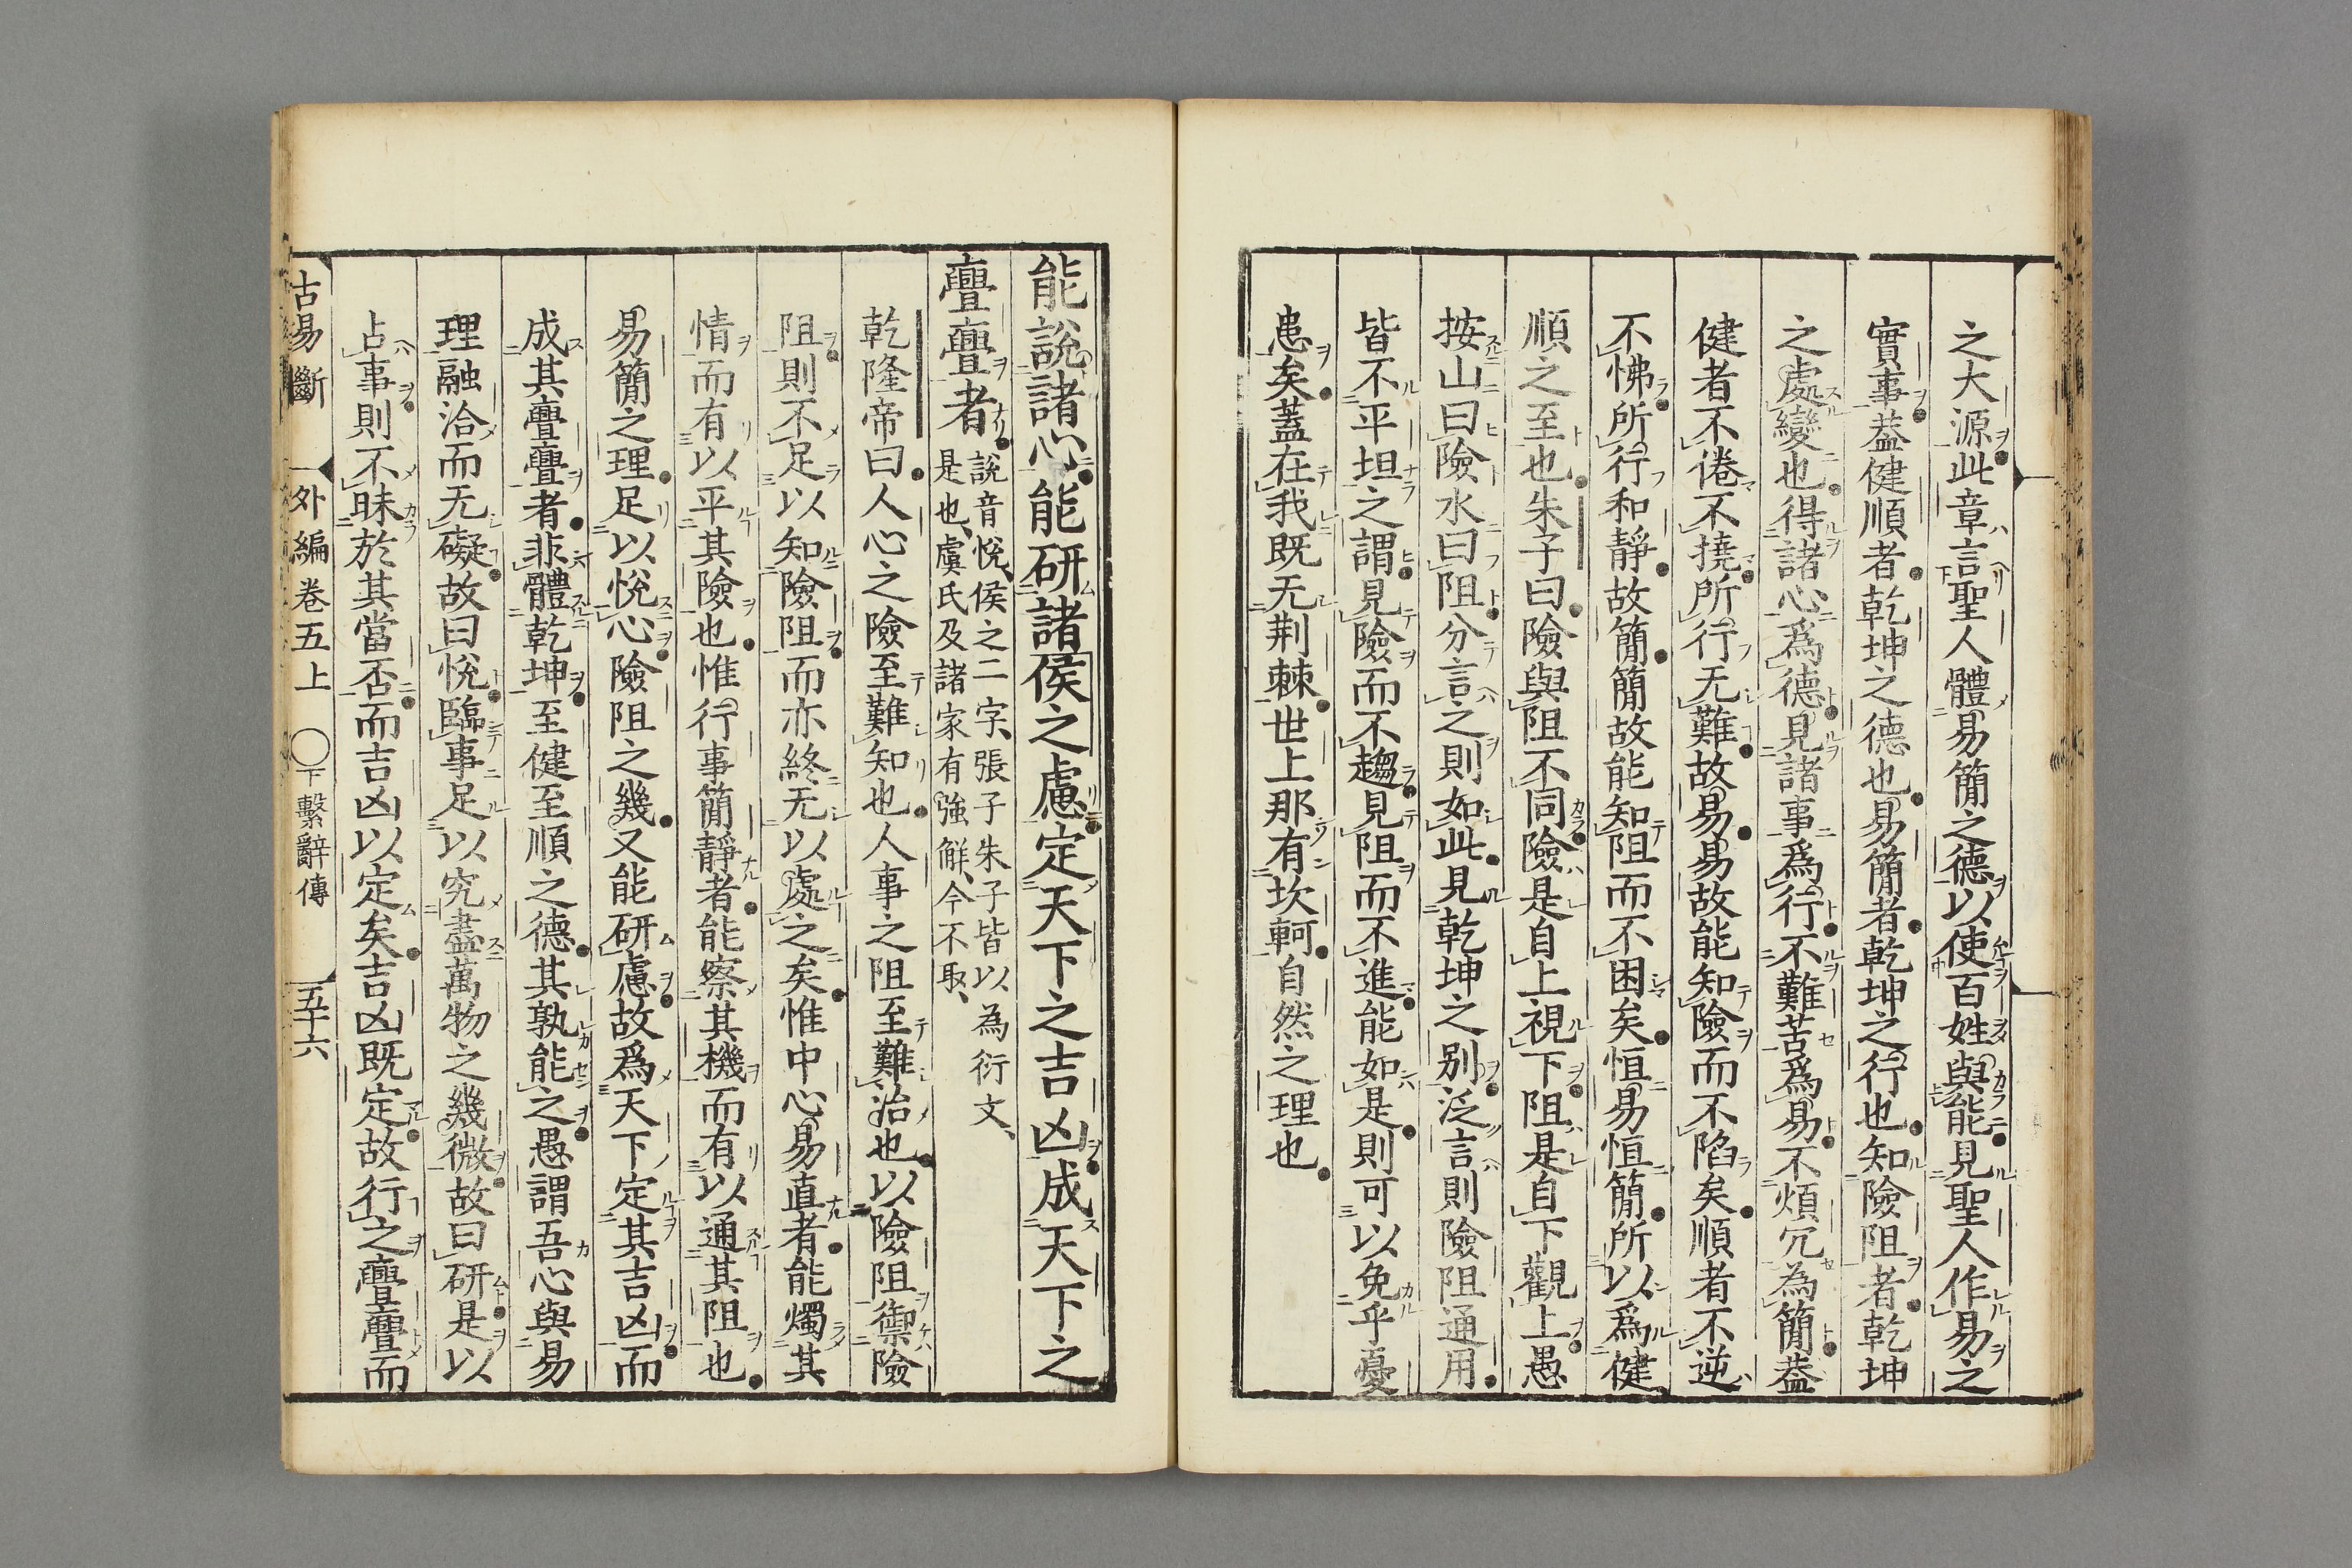 之大源此章言聖人體易簡之德以使百姓與能見聖人作易之
實事蓋健順者乾坤之德也易簡者乾坤之行也知險阻者乾坤
之處變也得諸心爲德見諸事爲行不難苦爲易不煩冗為簡蓋
健者不倦不撓所行无難故易易故能知險而不陷矣順者不逆
不怫所行和靜故簡簡故能知阻而不困矣恒易恒簡所以爲健
順之至也朱子曰險與阻不同險是自上視下阻是自下觀上愚
按山曰險水曰阻分言之則如此見乾坤之别泛言則險阻通用
皆不平坦之謂見險而不趨見阻而不進能如是則可以免乎憂
患矣蓋在我既无荆棘世上那有坎軻自然之理也
能說諸心能研諸侯之慮定天下之吉凶成天下之
亹亹者
說音悅侯之二字張子朱子皆以為衍文、
是也虞氏及諸家有強解、今不取、
乾隆帝曰人心之險至難知也人事之阻至難治也以險阻禦險
阻則不足以知險阻而亦終无以處之矣惟中心易直者能燭其
情而有以平其險也惟行事簡靜者能察其機而有以通其阻也
易簡之理足以悅心險阻之幾又能研慮故爲天下定其吉凶而
成其亹亹者非體乾坤至健至順之德其孰能之愚謂吾心與易
理融洽而无礙故曰悅臨事足以究盡萬物之幾微故曰研是以
占事則不昧於其當否而吉凶以定矣吉凶既定故行之亹亹而
古易斷 外編卷五上 ○下繫辭傳 五十六